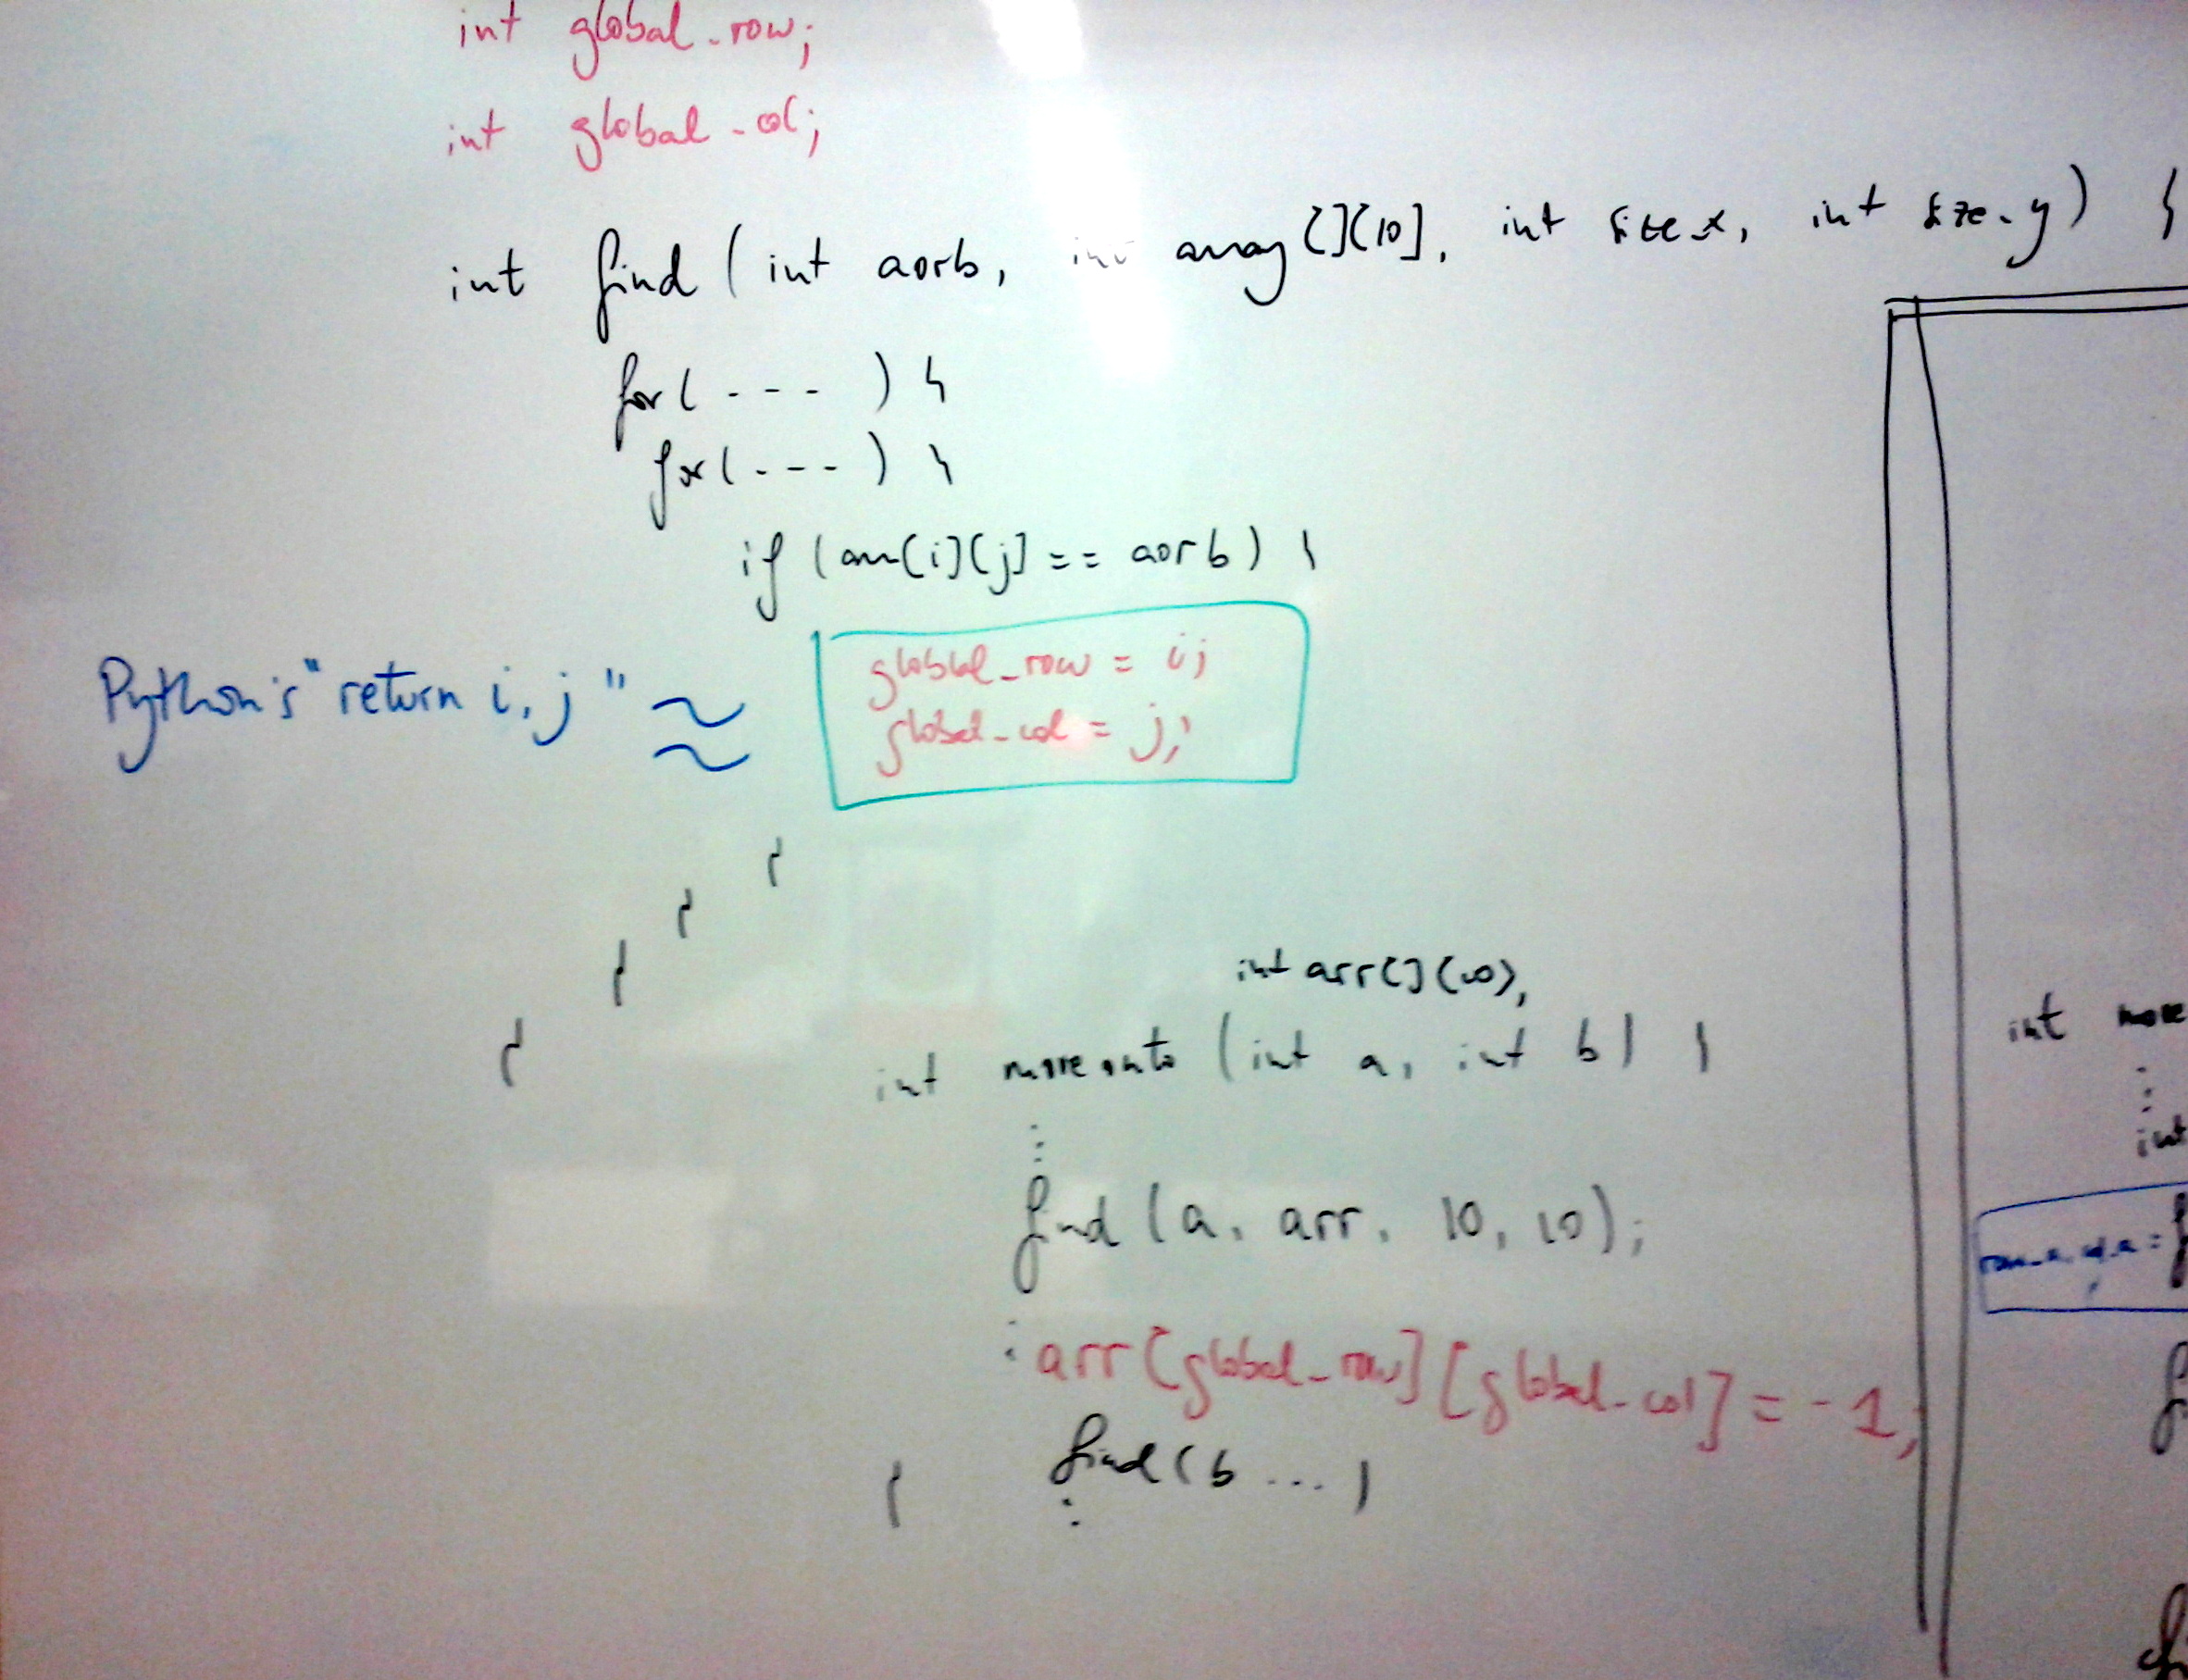 int global_row;
int global_col;
int find (int aorb, int array[][10], int size_x, int size_y) {
for( - - - ) {
for( - - - ) {
if (arr[i][j] == aorb) {
Python's "return i, j" ≈
global_row = i;
global_col = j;
}
}
}
}
int arr[][10],
int moveonto (int a, int b) {
⋮
find (a, arr, 10, 10);
: arr[global_row][global_col] = -1;
} find(b ... )
:
int move
⋮
int
row_a, col_a =